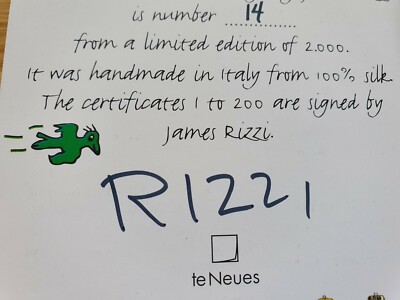 is number 14
from a limited edition of 2.000.
It was handmade in Italy from 100% silk.
The certificates 1 to 200 are signed by
James Rizzi.
RIZZI
teNeues